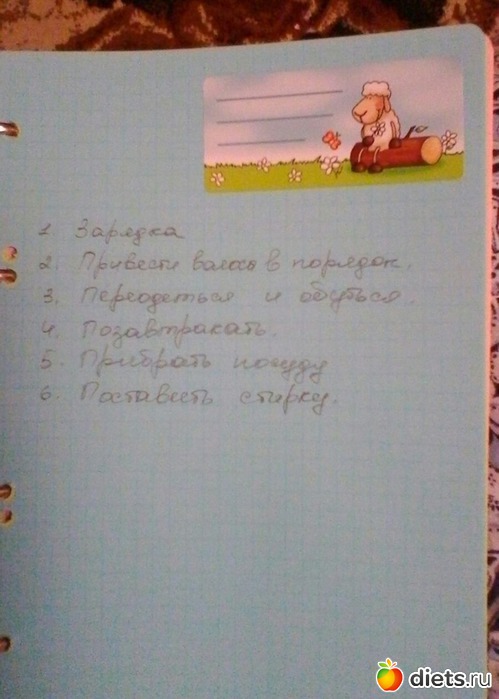 1 Зарядка
2. Привести волосы в порядок.
3. Переодеться и обуться.
4. Позавтракать.
5. Прибрать посуду
6. Поставить стирку.
diets.ru